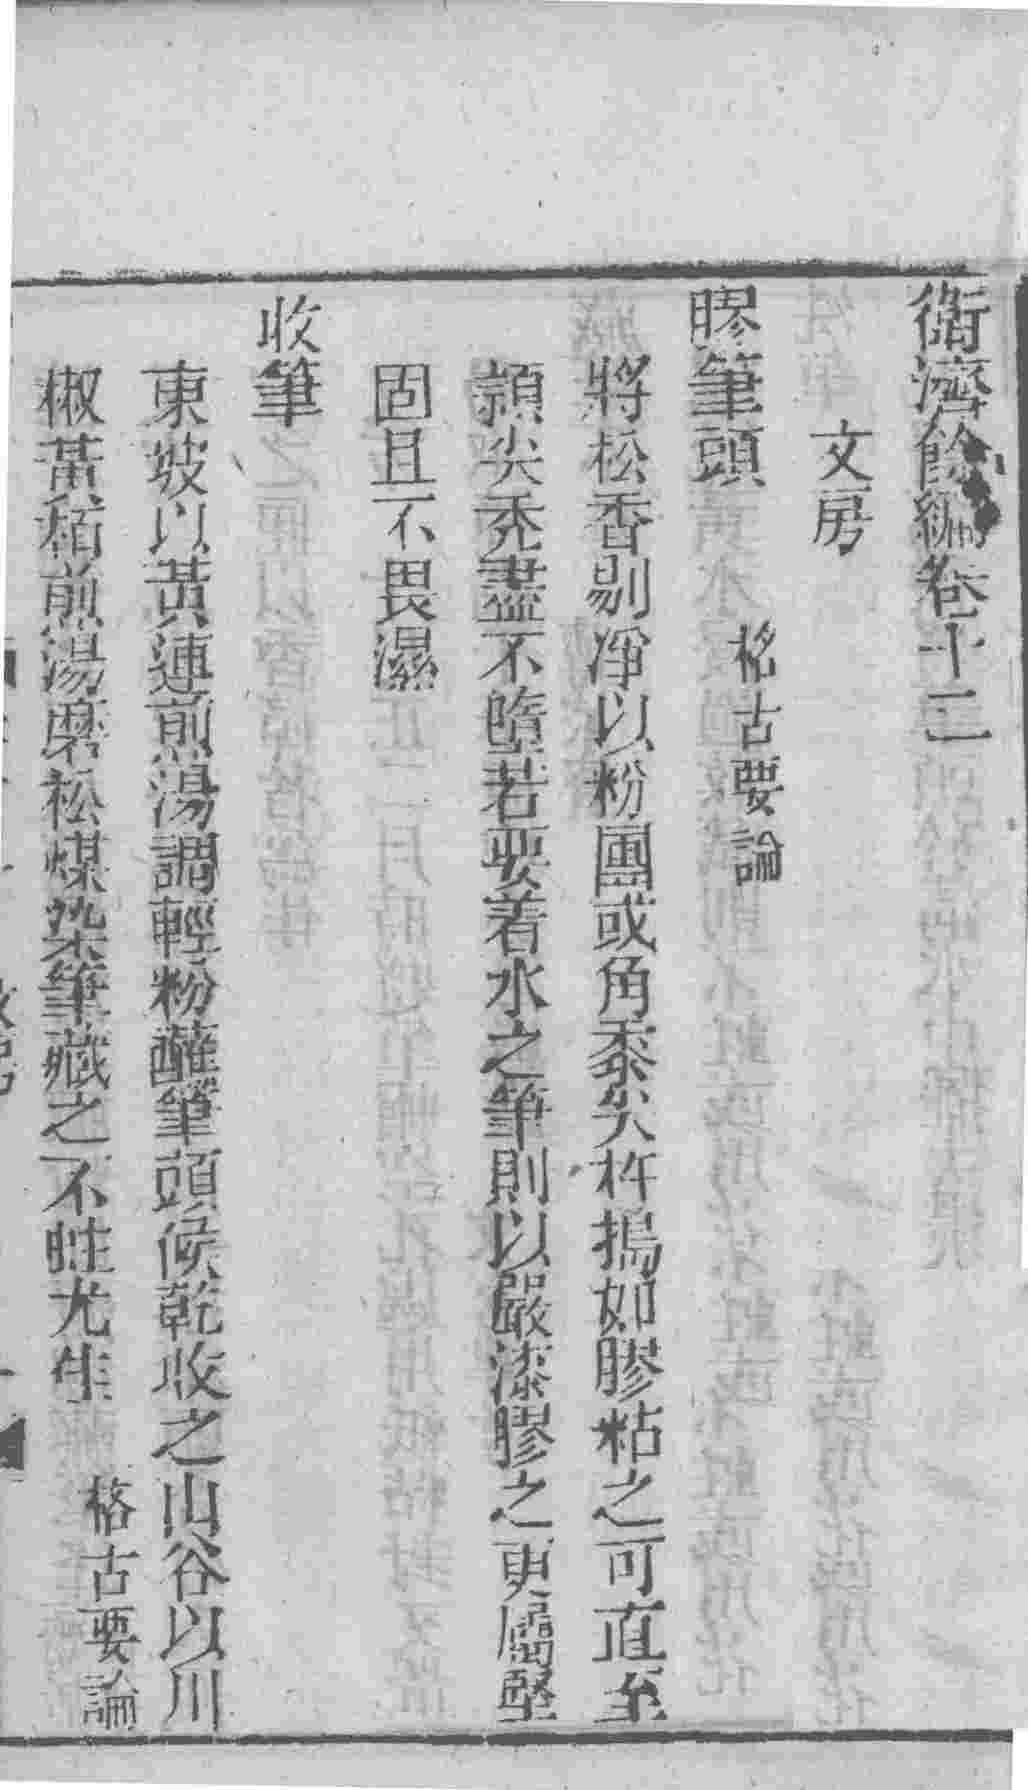 衞濟餘編卷十二
文房
膠筆頭 格古要論
將松香剔凈以粉團或角黍尖杵搗如膠粘之可直至
頴尖禿盡不墮若要着水之筆則以嚴漆膠之更屬堅
固且不畏濕
收筆
東坡以黃連煎湯調輕粉蘸筆頭候乾收之山谷以川
椒黃栢煎湯磨松煤染筆藏之不蛀尤佳 格古要論